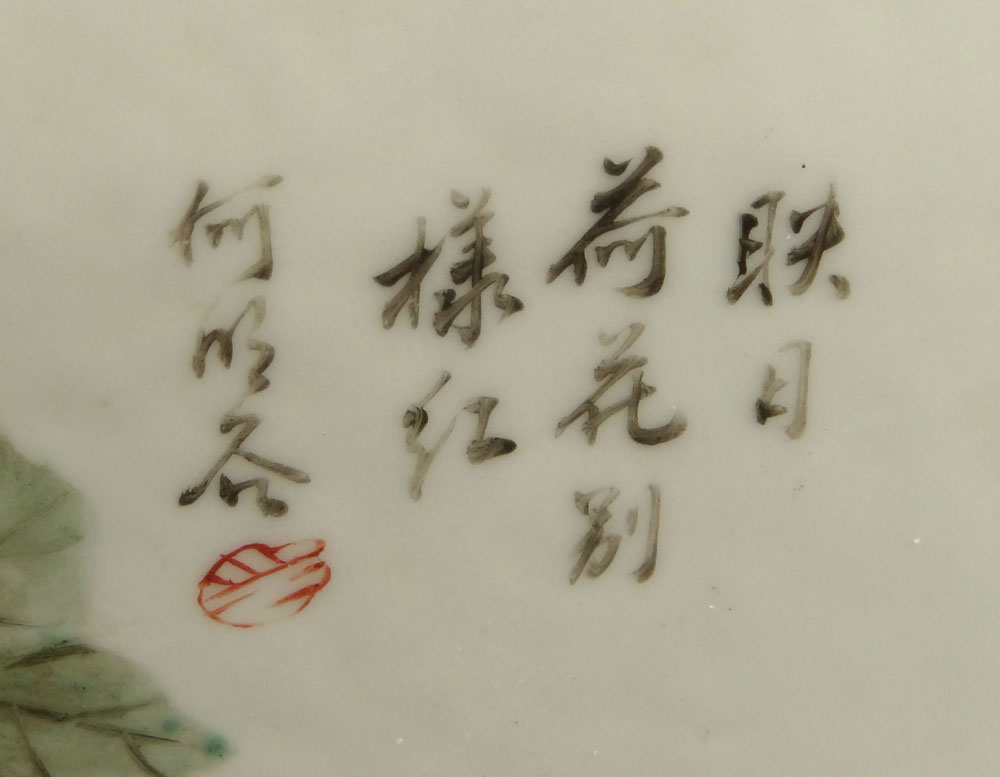 映日
荷花别
樣紅
何明谷